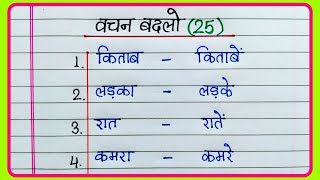 वचन बदलो (25)
1. किताब - किताबें
2. लड़का - लड़के
3. रात - रातें
4. कमरा - कमरे